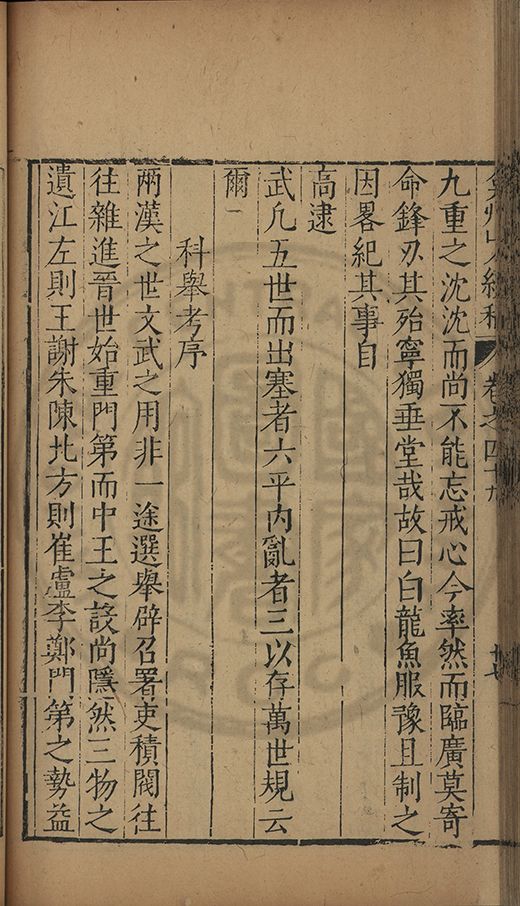 弇州山人續稿 卷之四十九 十七
九重之沈沈而尚不能忘戒心今率然而臨廣莫寄
命鋒刃其殆寧獨垂堂哉故曰白龍魚服豫且制之
因畧紀其事自
高逮
武凡五世而出塞者六平內亂者三以存萬世規云
爾
科舉考序
兩漢之世文武之用非一途選舉辟召署吏積閥往
往雜進晉世始重門第而中王之設尚隱然三物之
遺江左則王謝朱陳北方則崔盧李鄭門第之勢益